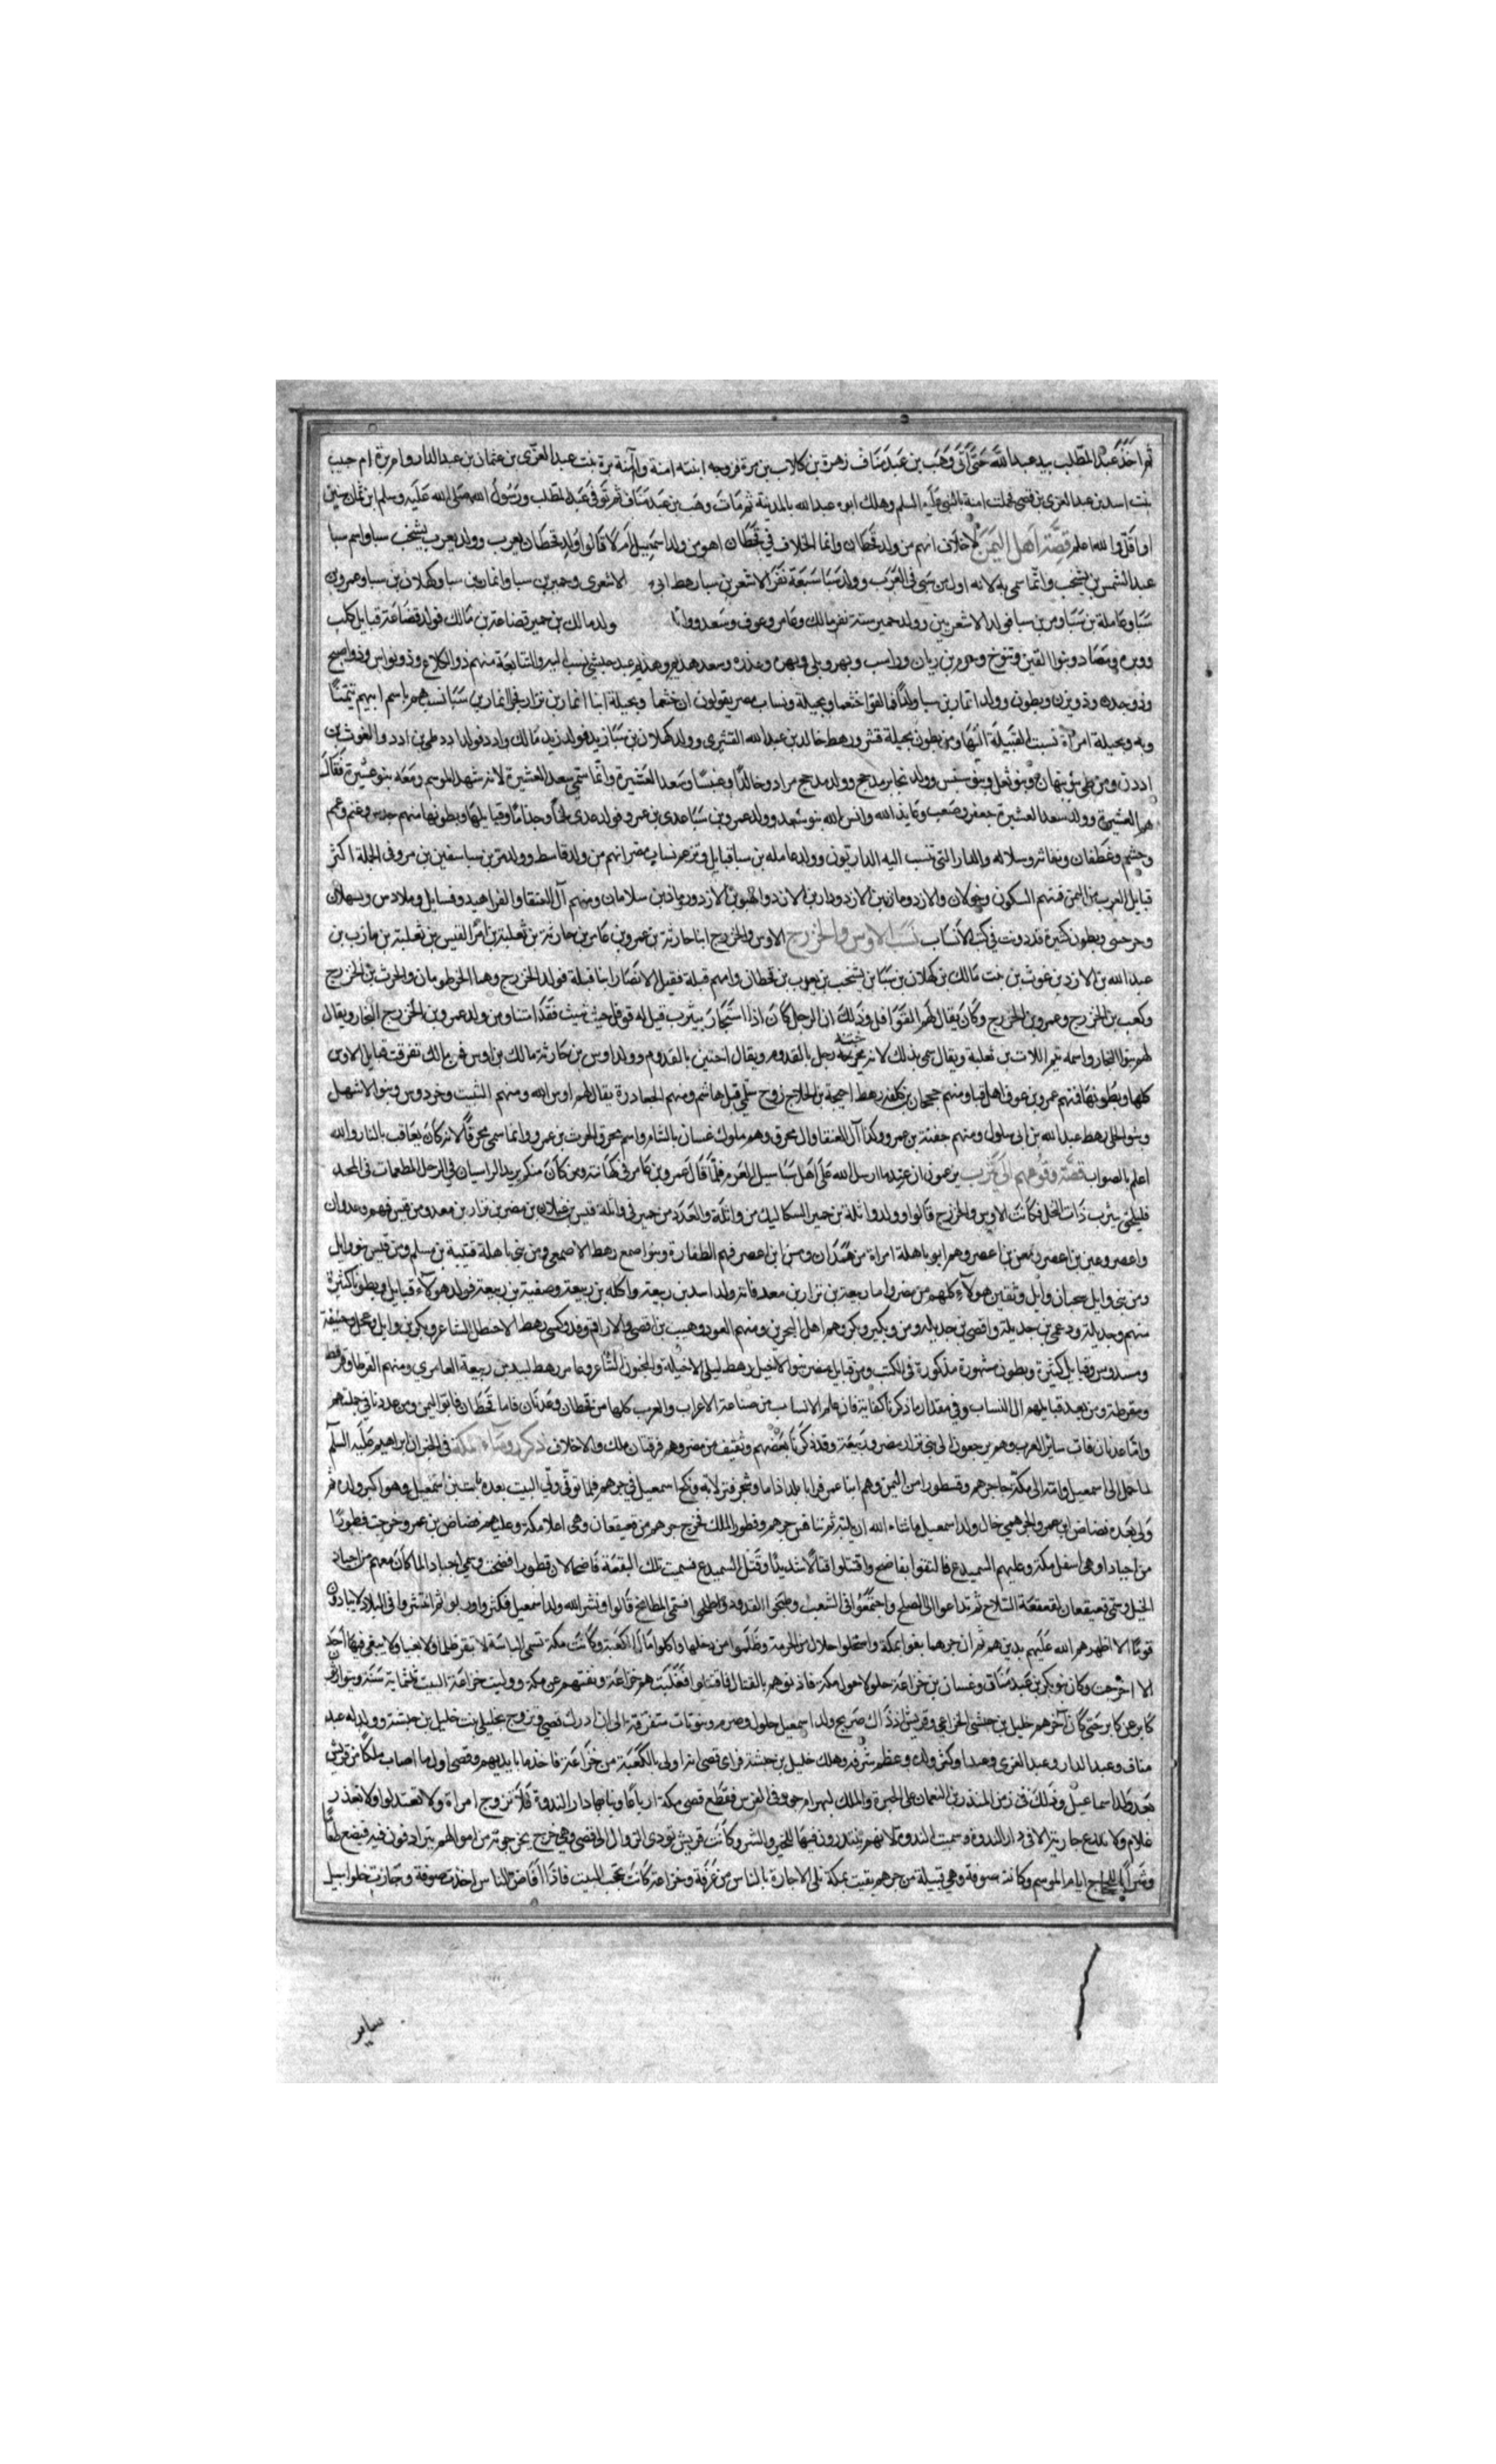 ثم اخذ عبد المطلب بيد عبد الله حتى اتى وهب بن عبد مناف زهرة بن كلاب بن مرة فزوجه ابنته امنة وام آمنة برة بنت عبد العزى بن عثمان بن عبد الدار وام برة ام حبيب
بنت اسد بن عبد العزى بن قصى فحملت امنة بالنبى عليه السلم وهلك ابوه عبد الله بالمدينة ثم مات وهب بن عبد مناف ثم توفى عبد المطلب ورسول الله صلى الله عليه وسلم ابن ثمان سنين
او اقل والله اعلم قصة اهل اليمن لا خلاف انهم من ولد قحطان وانما الخلاف في قحطان اهو من ولد اسمعيل ام لا قالوا ولد قحطان يعرب وولد يعرب يشخب سبا واسم سبا
عبد الشمس بن يشخب وانما سمى به لانه اول من سبى فى العرب وولد سبا سبعة نفر الاشعر بن سبا رهط ابى الاشعرى وحمير بن سبا وانمار بن سبا وكهلان بن سبا وعمرو بن
سبا وعاملة بن سبا ومر بن سبا فولد الاشعر بين وولد حمير ستة نفر مالك وعامر وعوف وسعد ووا ولد مالك بن حمير قضاعة بن مالك فولد قضاعة قبايل كلب
ووبره ومصاد وبنوا القين وتنوخ وجرم بن ريان وراسب وبهر وبلى ومهره وعذره وسعد هذيم وهذيم عبد حبشى نسب اليه والتبابعة منهم ذو الكلاع وذو نواس وذو اصبح
وذو جدن وذو يزن وبطون وولد انمار بن سبا ولدا فالقوا خثعما وبجيلة ونساب مصر يقولون ان خثعما وبجيلة ابنا انمار بن نزار انمار بن سبا نسبهم باسم ابيهم تيمنا
وبه وبجيلة امراة نسبت القبيلة اليها ومن بطون بجيلة قشر رهط خالد بن عبد الله القشيرى وولد كهلان بن سبا زيد فولد زيد مالك وادد فولد ادد طى بن ادد والغوث بن
ادد ومن طى بنو نبهان وبنو ثعل وبنو سنبس وولد نجابر مدحج وولد مدحج مراد وخالدا وعنسا وسعد العشيرة وانما سمى سعد العشيرة لانه شهد الموسم ومعه بنو عشيرة فقال
هم العشيرة وولد سعد العشيرة جعفر وصعب وعايذ الله وانس الله بنو سعد وولد عمرو بن سبا عدى بن عمرو فولد عدى لخما وجذاما وقبايلها وبطونها منهم جدس وغنم وغم
وجشم وغطفان ونفاثر وسلاله والدار التى تنسب اليه الداريون وولد عامله بن سبا قبايل وتزعم نساب مضر انهم من ولد قاسط وولد مر بن سبا سفين بن مر وفى الجملة اكثر
قبايل العرب من اليمن فمنهم السكون وخولان والازد ومازن بن الازد ودار بن الازد والهبو بن الازد ودر مازن بن سلامان ومنهم آل العنقا والفراهيد وفسايل وملادس وسهلان
وحرسى وبطون كثيرة قد دونت في كتب الانساب نسب الاوس والخزرج الاوس والخزرج ابنا حارثة بن عمرو بن عامر بن حارثة بن ثعلبة بن امرا القيس بن ثعلبة بن مازن بن
عبد الله بن الازد بن غوث بن نبت مالك بن كهلان بن سبا بن يشخب بن يعرب بن قحطان وامهم قيلة فقيل الانصار ابنا قيلة فولد الخزرج وهما الخرطومان والحرث بن الخزرج
وكعب بن الخزرج وعمرو بن الخزرج وكان يقال لهم القوافل وذلك ان الرجل كان اذا استجار بيثرب قيل له قوقل حيث شيت فقد امنت ومن ولد عمرو بن الخزرج النجار ويقال
لهم بنوا النجار واسمه تيم اللات بن ثعلبة ويقال سمى بذلك لانه نجر ختنه رجل بالقدوم ويقال اختتن بالقدوم وولد اوس بن حارثة مالك بن اوس فمن مالك تفرقت قبايل الاوس
كلها وبطونها فمنهم عمرو بن عوف اهل قبا ومنهم جحجبا بن كلفة رهط احيحة بن الجلاح زوج سلمى قبل هاشم ومنهم الجعادرة يقال لهم اوس الله ومنهم النبيت وخردوس وبنو الاشهل
وبنو الحبلى رهط عبد الله بن ابى سلول ومنهم جفنة بن عمرو وكذا آل العنقا وال محرق وهم ملوك غسان بالشام واسم محرق الحرث بن عمرو وانما سمى محرقا لانه كان يعاقب بالنار والله
اعلم بالصواب قصة وقوعهم الى يثرب يزعمون ان عند ما ارسل الله على اهل سبا سيل العرم فلما قال عمرو بن عامر فى كهانته ومن كان منكم يريد الراسيات فى الوحل المطعمات فى المحل
فليلحق بيثرب ذات النخل فكانت الاوس والخزرج قالوا وولد واثلة بن حمير السكاسك من واثلة والعدد من حمير فى واثلة قيس بن غيلان بن مضر بن نزار بن معد ومن قيس فهم وعدوان
واعصر وعين بن اعصر ومعن بن اعصر وهم ابو باهلة امراة من همدان ومن ابن اعصر فهم الطفارة وبنو اصمع رهط الاصمعى ومن بنى باهلة قتيبة بن مسلم ومن قيس بنو وايل
ومن بنى وايل سحبان وايل وثقين هولآء كلهم من مضر واما ربيعة بن نزار بن معد فانه ولد اسد بن ربيعة واكله بن ربيعة وصفية بن ربيعة فولد هولآء قبايل وبطونا كثيرة
منهم وجديلة ودعمى بن جديلة واقصى بن جديله ومن وبكير وبكر وهم اهل البحرين ومنهم العود وهيب بن اقصى والاراقم وفدوكس رهط الاخطل الشاعر وبكر بن وايل وعجل وحنيفة
وسدوس وقبايل كثيرة وبطون مشهورة مذكورة فى الكتب ومن قبايل مضر بنو الاخيل رهط ليلى الاخيلة والمجنون الشاعر وعامر رهط لبيد بن ربيعة العامرى ومنهم القرطا وقريط
ومقرطة ومن بعد قبايلهم الى النساب وفى مقدار ما ذكرنا كفاية فان علم الانساب من صناعة الاعراب والعرب كلها من قحطان وعدنان فاما قحطان فابو اليمن ومن عددنا فى جملتهم
واما عدنان فاب ساير العرب وهم يرجعون الى بنى نزار مضر وربيعة وقد ذكرنا بعضهم وثقيف من مضر وهم فرقتان ملك والاخلاف ذكر روساء مكة فى الخبر ان ابراهيم عليه السلم
لما حمل الى اسمعيل وامته الى مكة جا جرهم وقطورا من اليمن وهم ابنا عم فرايا بلدا ذا ما وشجر فنزلا به ونكح اسمعيل فى جرهم فلما توفى ولى البيت بعده نابت بن اسمعيل وهو اكبر ولده ثم
ولى بعده مضاض ابن عمرو الجرهمي خال ولد اسمعيل ما شاء الله ان يليه ثم تنافس جرهم وقطورا الملك فخرج جرهم من قعيقعان وهى اعلا مكة وعليهم مضاض بن عمرو وخرجت قطورا
من اجياد وهى اسفل مكة وعليهم السميدع فالتقوا بفاضح واقتتلوا قتالا شديدا وقتل السميدع فسميت تلك البقعة فاضحا لان قطورا فضحت وسمى اجياد لما كان معهم من اجياد
الخيل وسمى قعيقعان لقعقعة السلاح ثم تداعوا الى الصلح واجتمعوا فى الشعب وطبخوا القدور فسمى المطابخ قالوا ونشر الله ولد اسمعيل فكثروا وربوا ثم انتشروا فى البلاد لا ينادون
قوما الا اظهرهم الله عليهم بدينهم ثم ان جرهما بغوا بمكة واستحلوا حلالا من الحرمة وظلموا من دخلها واكلوا مال الكعبة وكانت مكة تسمى الباسة لا تقر ظلما ولا بغيا ولا يبغى فيها احد
الا اخرجت وكان بنو بكر بن عبد مناف وغسان بن خزاعة حلولا حول مكة فاذنوهم بالقتال فاقتتلوا فغلبتهم خزاعة ونفتهم عن مكة ووليت خزاعة البيت ثلثماية سنة يتوارثون
كابر عن كابر حتى كان آخرهم خليل بن حبشى الخزاعى وقريش اذ ذاك صريح ولد اسمعيل حلول وصرم وبيوتات متفرقة الى ان ادرك قصى وتزوج بحليلى بنت خليل بن حبشة وولد له عبد
مناف وعبد الدار وعبد العزى وعبدا وكثر ولده وعظم شرفه وهلك خليل بن حبشة فراى قصى انه اولى بالكعبة من خزاعة فاخذها بايديهم وقصى اول ما اصاب ملكا من قريش
بعد ولد اسماعيل وذلك فى زمن المنذر بن النعمان على الحيرة والملك لبهرام جور فى الفرس فقطع قصى مكة ارباعا وبنا بها دار الندوة فلا تزوج امراة ولا يعقد لوا ولا يعذر
غلام ولا تدرع جارية الا فى دار الندوة وسميت الندوة لانهم ينتدون فيها للخير والشر وكانت قريش تودى الزوال الى قصى وهى خرج يخرجونه من اموالهم يترادفون فيه فيضع طعاما
وشرابا للحاج ايام الموسم وكانت صوفة وهى قبيلة من جرهم بقيت بمكة تلى الاجازة بالناس من عرفة وخزاعة كانت تحجب البيت فاذا افاض الناس اخذت صوفة وجازت خلوا سبيل
ساير